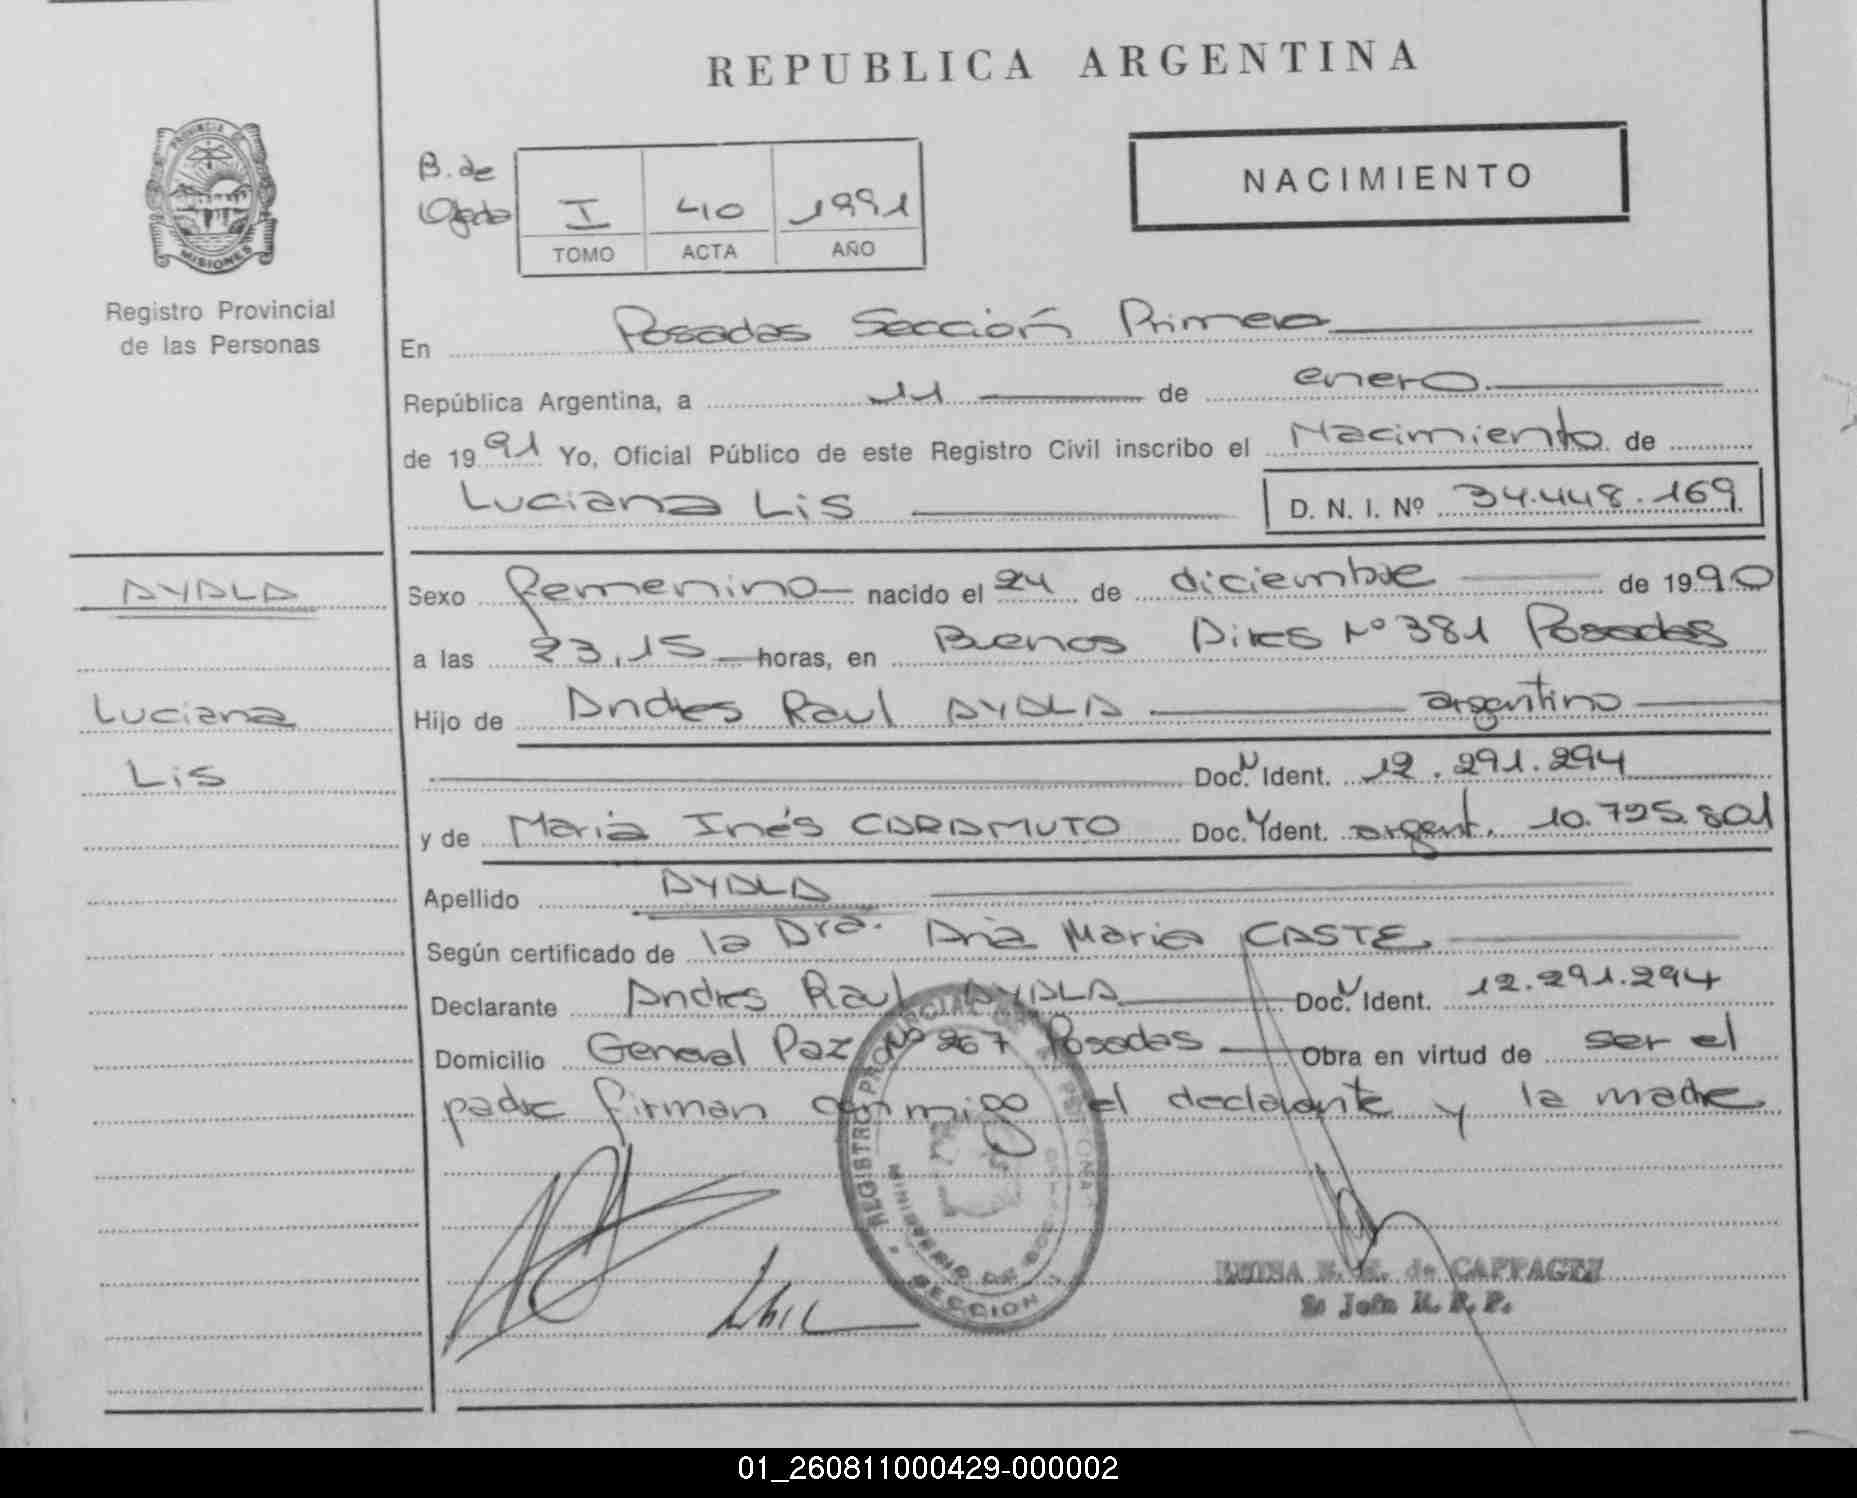 REPUBLICA ARGENTINA
PROVINCIA DE
MISIONES
Registro Provincial
de las Personas
B. de
Ojeda
I 40 1991
TOMO ACTA AÑO
NACIMIENTO
En Posadas Sección Primera
República Argentina, a 11 de enero
de 1991 Yo, Oficial Público de este Registro Civil inscribo el Nacimiento de
Luciana Lis
D. N. I. Nº 34.448.169
AYALA
Luciana
Lis
Sexo femenino nacido el 24 de diciembre de 1990
a las 23,15 horas, en Buenos Aires Nº 381 Posadas
Hijo de Andres Raul AYALA argentino
Doc. Ident. 12.291.294
y de Maria Inés CARAMUTO Doc. Ident. argent. 10.795.801
Apellido AYALA
Según certificado de la Dra. Ana Maria CASTE
Declarante Andres Raul AYALA Doc. Ident. 12.291.294
Domicilio General Paz Nº 267 Posadas Obra en virtud de ser el
padre firman conmigo el declarante y la madre
REGISTRO PROVINCIAL DE LAS PERSONAS
MINISTERIO DE GOBIERNO
SECCION 1
de CAPPAGEN
Jefa R. P.
01_260811000429-000002